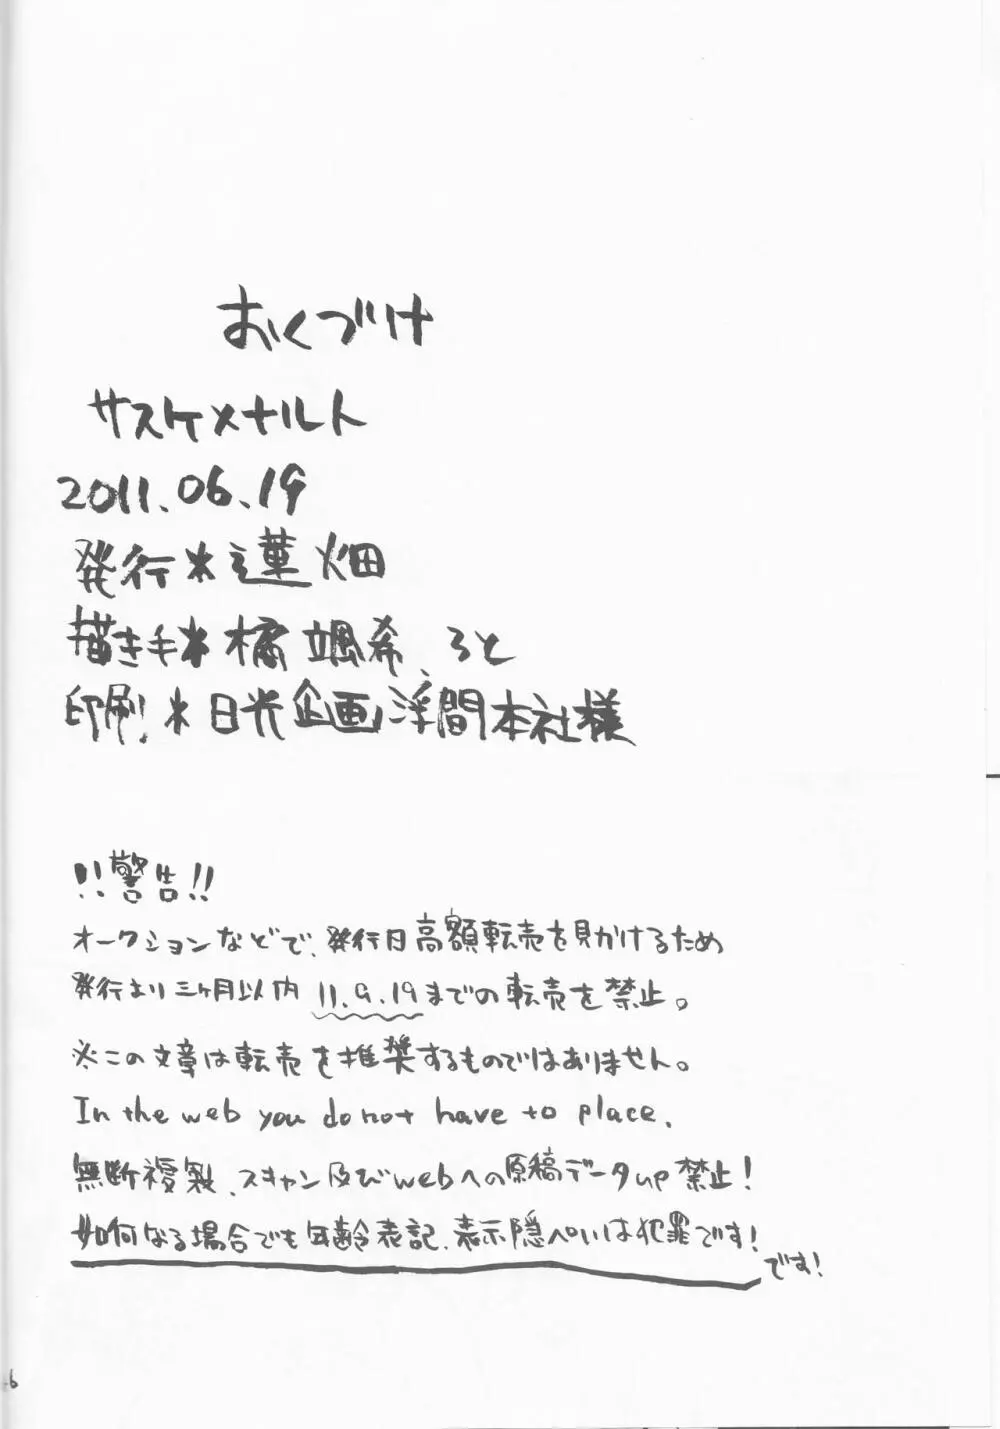 おくづけ
サスケ×ナルト
2011.06.19
発行*蓮畑
描き手*橘颯希、ろと
印刷*日光企画浮間本社様
!!警告!!
オークションなどで、発行日高額転売を見かけるため
発行より三ヶ月以内11.9.19までの転売を禁止。
※この文章は転売を推奨するものではありません。
In the web you do not have to place.
無断複製、スキャン及びwebへの原稿データup禁止!
如何なる場合でも年齢表記、表示隠ぺいは犯罪です!
です!
6